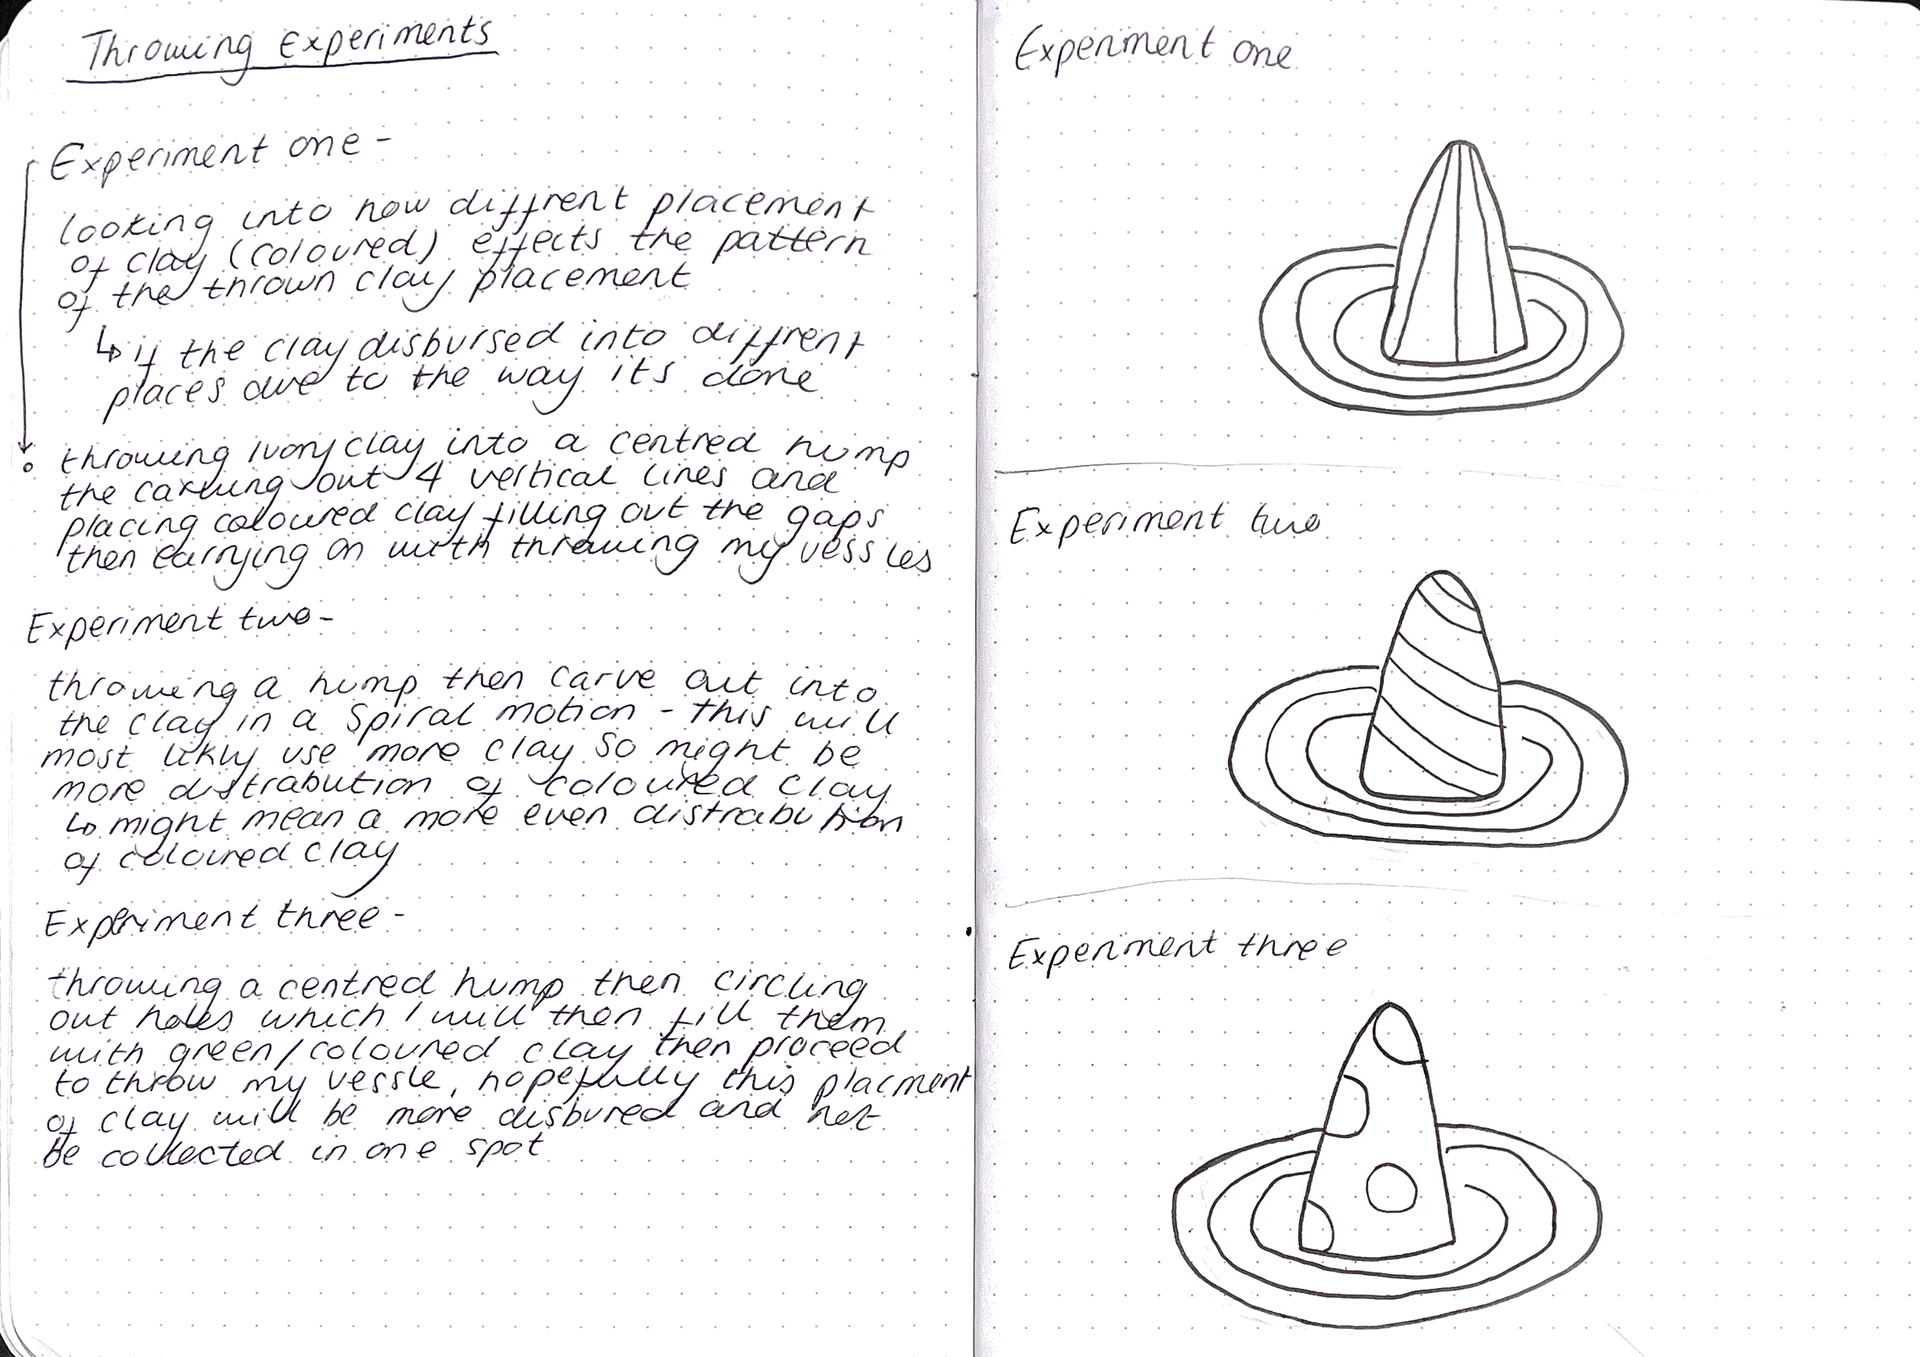 Throwing Experiments
Experiment one -
looking into how diffrent placement
of clay (coloured) effects the pattern
of the thrown clay placement
↳ if the clay disbursed into diffrent
places due to the way its done
• throwing Ivory clay into a centred hump
the carving out 4 vertical lines and
placing coloured clay filling out the gaps
then carrying on with throwing my vessles
Experiment two -
throwing a hump then carve out into
the clay in a spiral motion - this will
most likly use more clay so might be
more distrabution of coloured clay
↳ might mean a more even distrabution
of coloured clay
Experiment three -
throwing a centred hump then circling
out holes which I will then fill them
with green/coloured clay then proceed
to throw my vessle, hopefully this placment
of clay will be more disbured and not
be collected in one spot
Experiment one
Experiment two
Experiment three